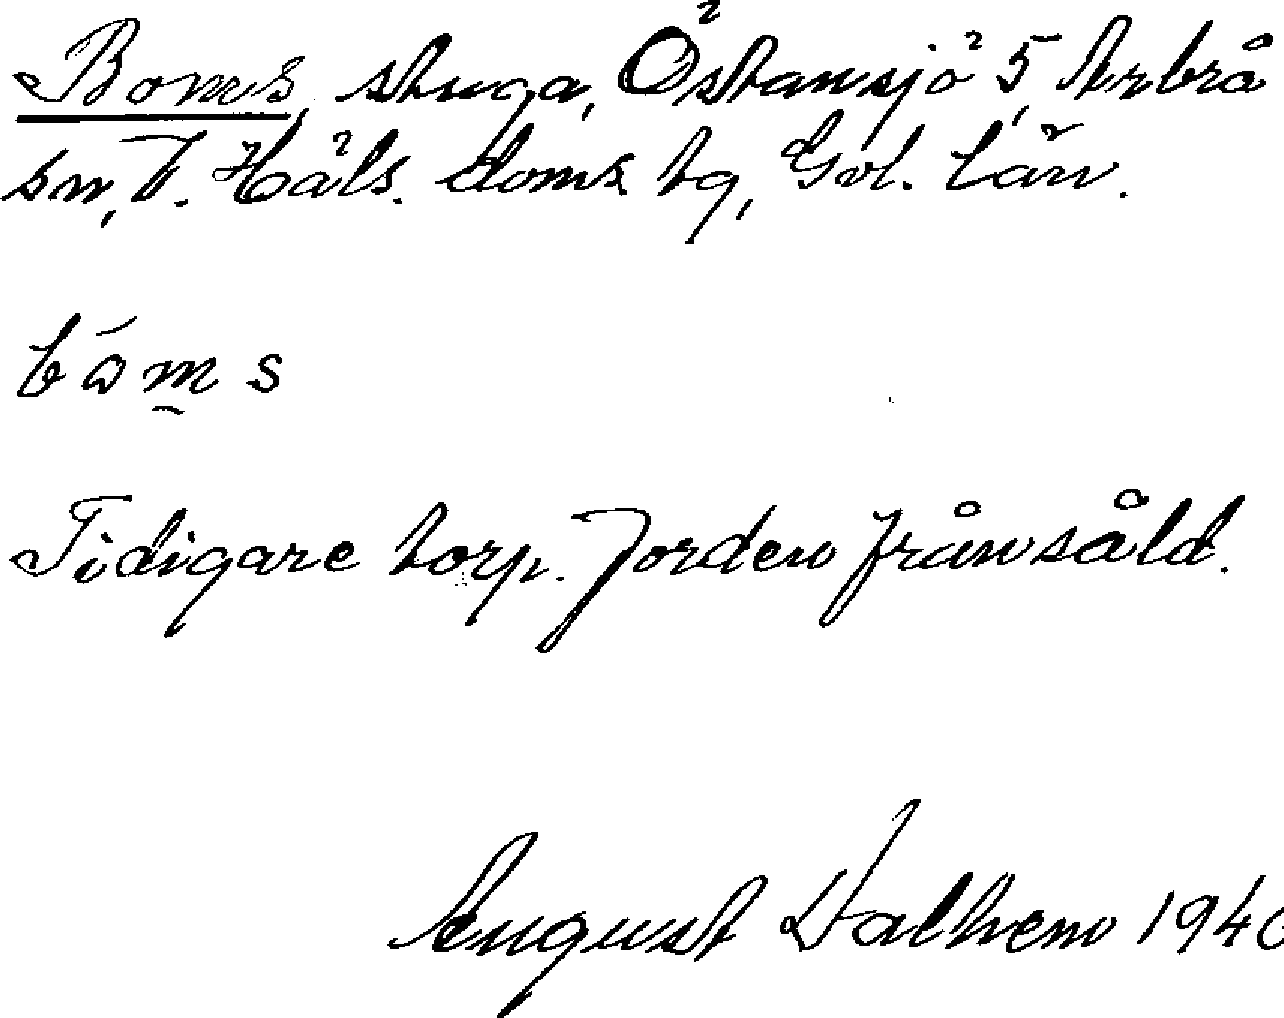 Boms, stuga, Östansjö 5, Arbrå
sn, V. Häls. doms. tg, Gvl. län.
bóm̰s
Tidigare torp. Jorden frånsåld.
August Valhem 1940